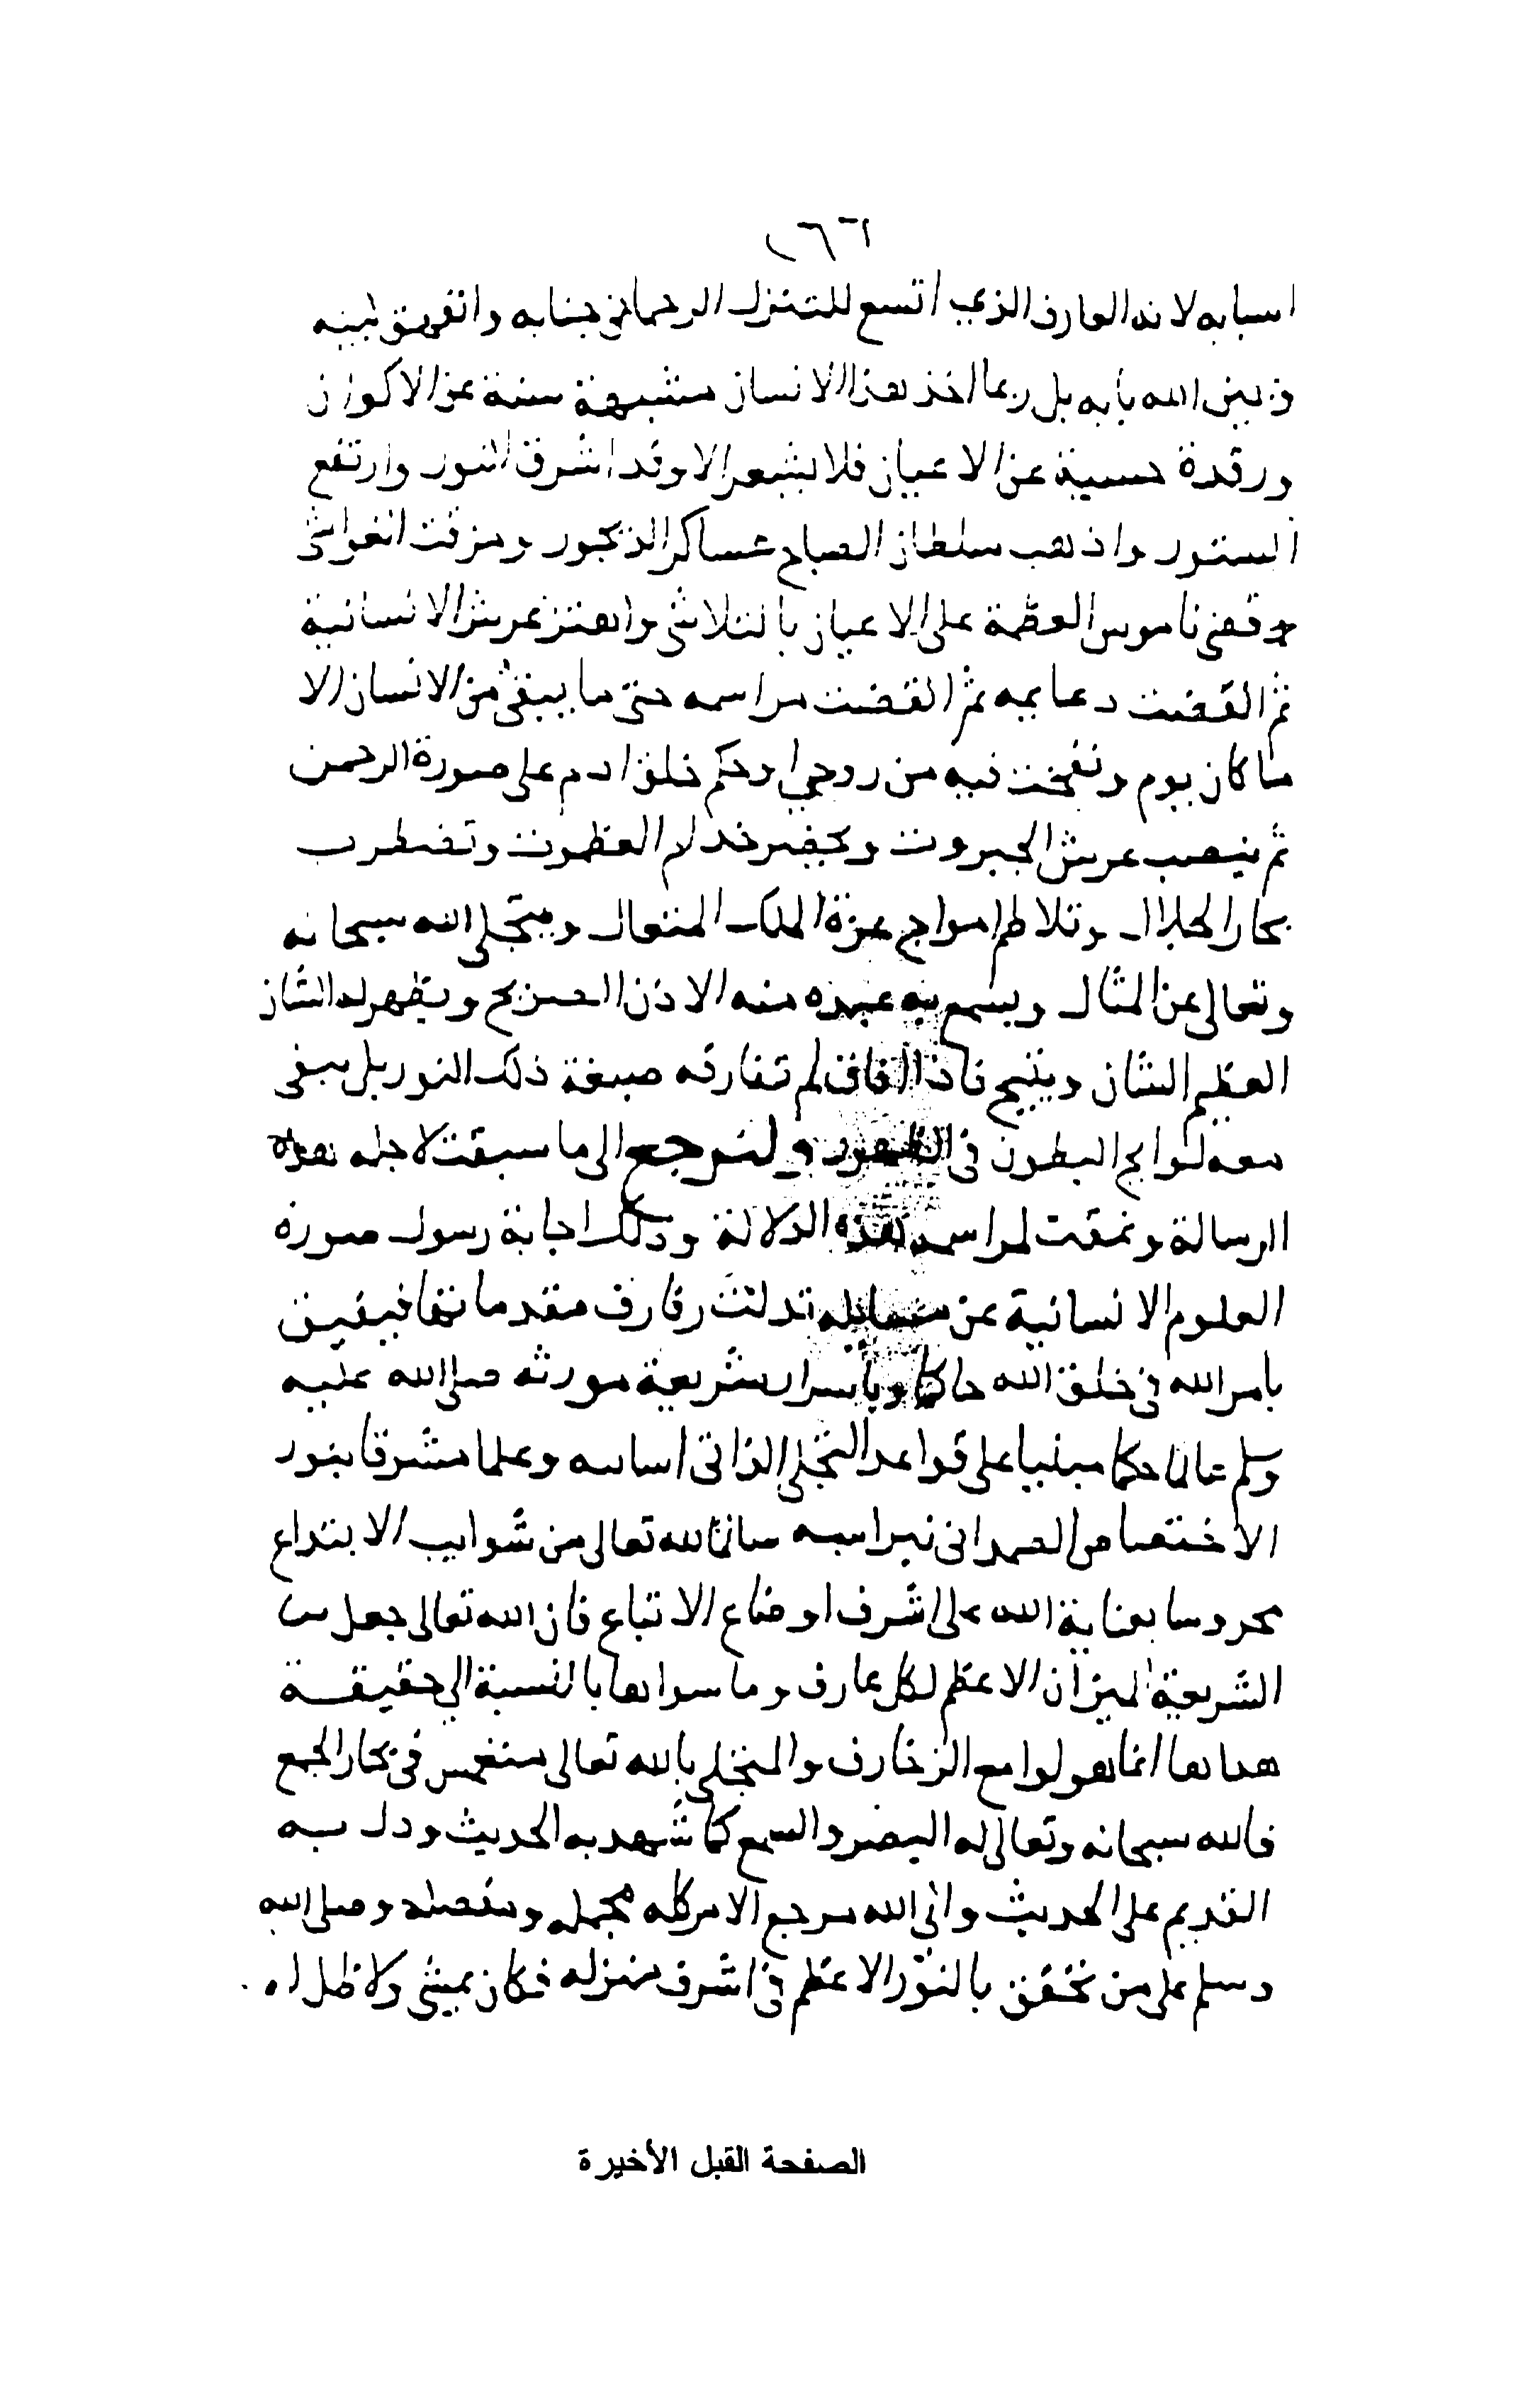 اسبابه لانه العارف الذي اتسع للتنزل الرحماني جنابه وانفهق بينه
وبين الله بابه بل ربما اخذ هذا الانسان سنة عن الاكوان
ورقدة حسية عن الاعيان فلا يشعر الا وقد اشرق النور وارتفع
الستور واذهب سلطان الصباح عساكر الديجور ومزقت الغواشي
وقضى ناموس العظمة على الاعيان بالتلاشي واهتز عرش الانسانية
ثم انقضت دعايمه ثم انقضت مراسمه حتى ما يبقى من الانسان الا
ما كان يوم ونفخت فيه من روحي او حكم خلق ادم على صورة الرحمن
ثم ينصب عرش الجبروت ويحضر خدام العظموت وتضطرب
بحار الجلال وتلاطم امواج عزة الملك المتعال ويتجلى الله سبحانه
وتعالى عن المثال ويسمع عبده منه الاذن الصريح ويظهر له الشان
العظيم الشان فاذا افاق لم تفارقه صبغة ذلك النور بل يبقى
معه لوايح البطون في الظهور ولنرجع الى ما سبقت لاجله هذه
الرسالة ونمقت لمراسمه هذه الدلالة وذلك اجابة رسول صورة
العلوم الانسانية عن تدلت رفارف مقدماتها فيفيض
بامر الله في خلق الله حاكما وباسرار شريعة مورثه صلى الله عليه
وسلم عالما حكما مبنيا على قواعد التجلي الذاتي اساسه وعلما مشرقا بنور
الاختصاص الصمداني نبراسه صانها الله تعالى من شوايب الابتداع
محروسا بعناية الله على اشرف اوضاع الاتباع فان الله تعالى جعل من
الشريعة الميزان الاعظم لكل عارف وما سواها بالنسبة الى حقيقة
هداها انما هو لوامع الزخارف والمتجلي بالله تعالى منغمس في بحار الجمع
فالله سبحانه وتعالى له البصر والسمع كما شهد به الحديث ودل به
القديم على الحديث والى الله مرجع الامر كله مجمله ومفصله وصلى الله
وسلم على من تحقق بالنور الاعظم في اشرف منزله فكان يمشي ولا ظل له
الصفحة القبل الأخيرة